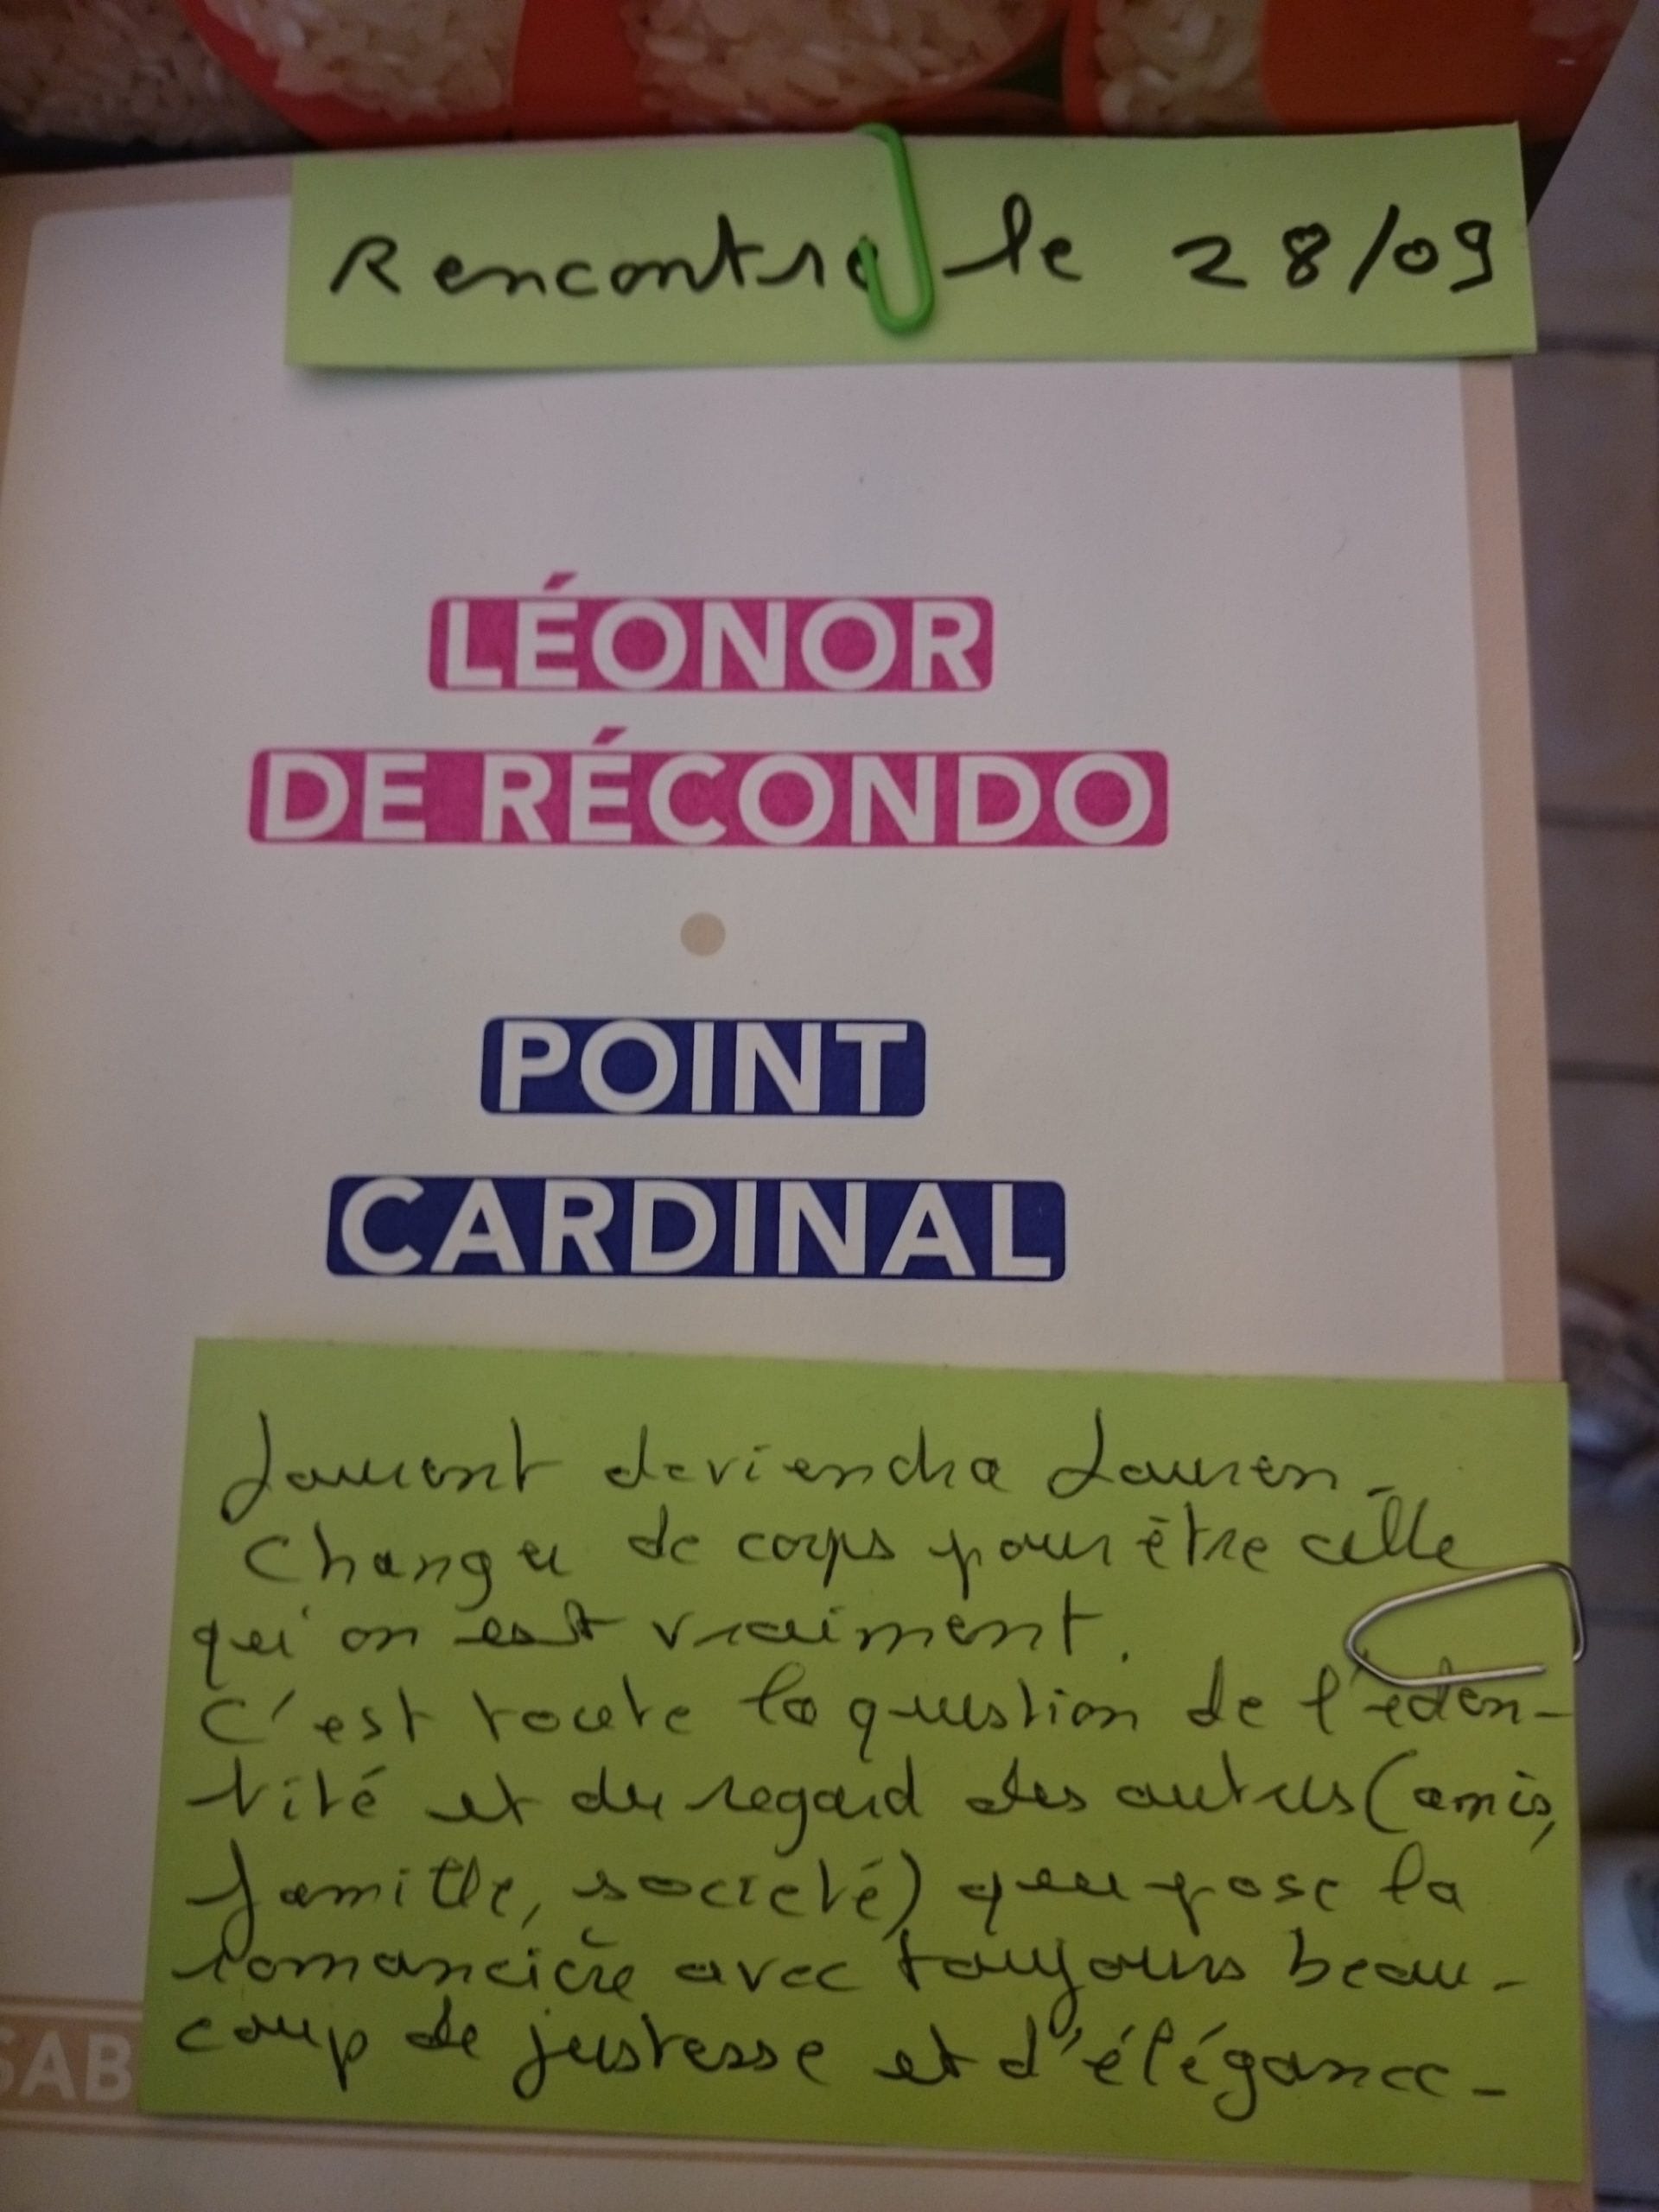 Rencontre le 28/09
LÉONOR
DE RÉCONDO
POINT
CARDINAL
Laurent deviendra Lauren.
Changer de corps pour être celle
qu'on est vraiment.
C'est toute la question de l'iden-
tité et du regard des autres (amis,
famille, société) que pose la
romancière avec toujours beau-
coup de justesse et d'élégance.
SAB